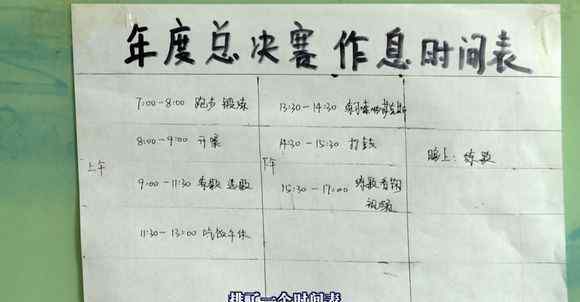 年度总决赛作息时间表
上午
7:00-8:00 跑步 锻炼
8:00-9:00 开嗓
9:00-11:30 练歌 选歌
11:30-13:00 吃饭午休
下午
13:30-14:30
14:30-15:30 打鼓
15:30-17:00 练歌看钢
视频
晚上: 练歌
排了一个时间表